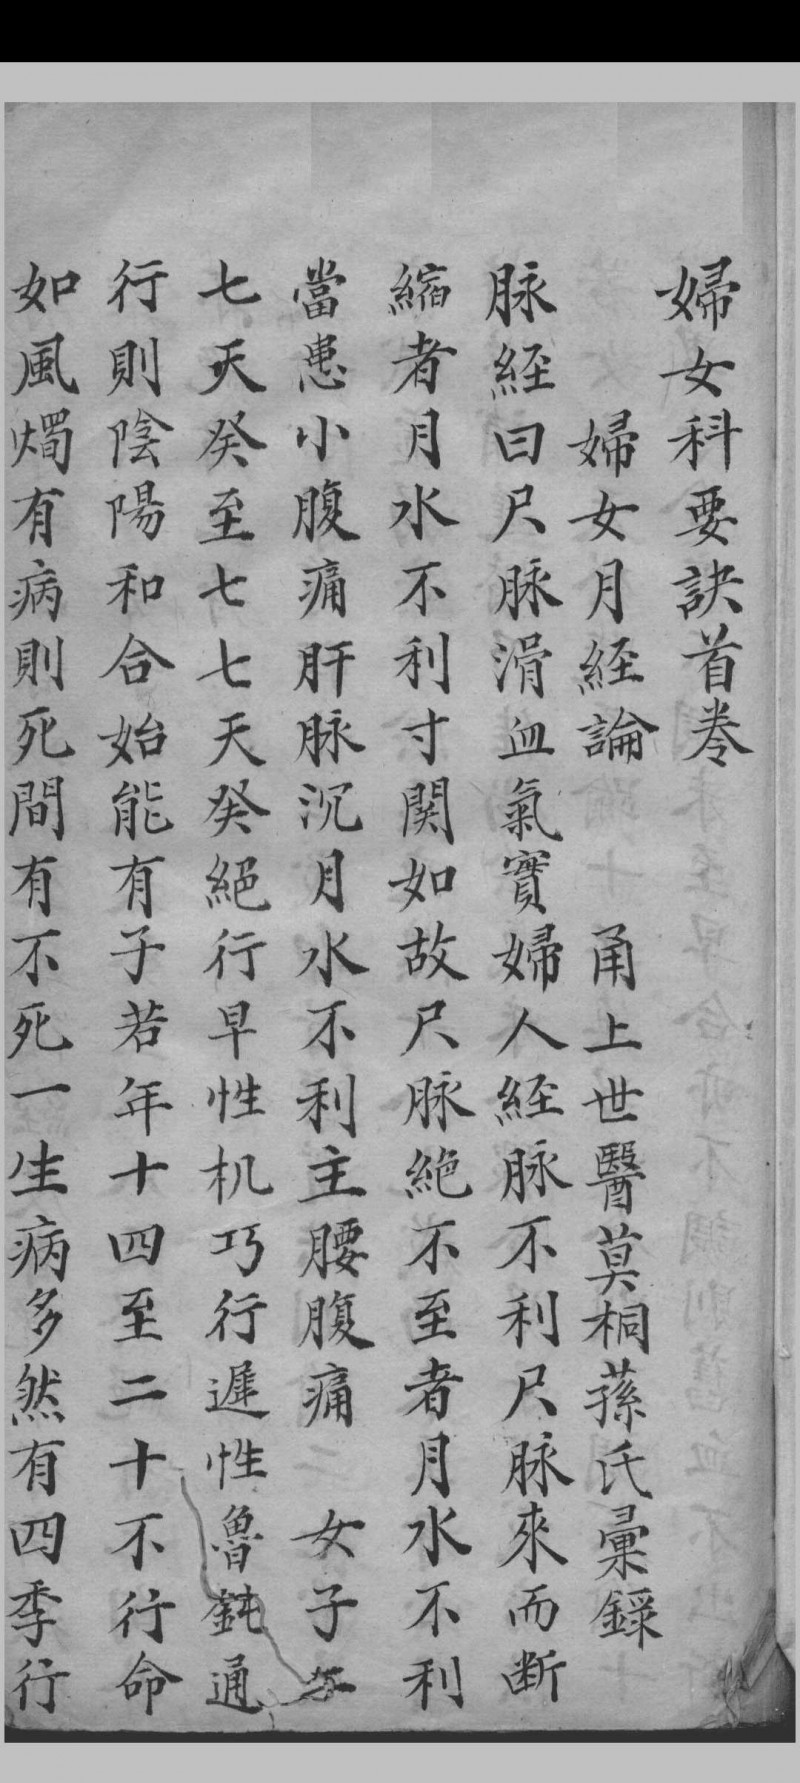 婦女科要訣首卷
婦女月經論 甬上世醫莫桐蓀氏彙錄
脉經曰尺脉滑血氣實婦人經脉不利尺脉來而断
縮者月水不利寸関如故尺脉絶不至者月水不利
當患小腹痛肝脉沉月水不利主腰腹痛 女子
七天癸至七七天癸絕行早性机巧行遲性魯鈍通
行則陰陽和合始能有子若年十四至二十不行命
如風燭有病則死間有不死一生病多然有四季行